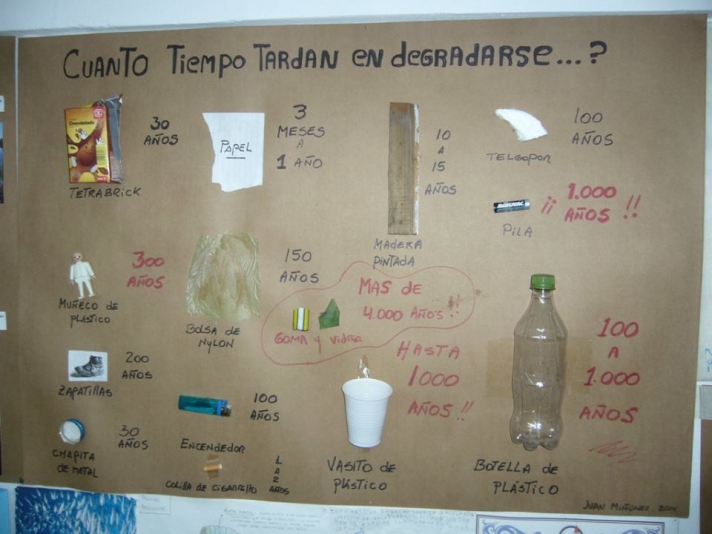 CUANTO TIEMPO TARDAN EN DEGRADARSE...?
TETRABRICK
30
AÑOS
PAPEL
3
MESES
A
1 AÑO
MADERA
PINTADA
10
A
15
AÑOS
TELGOPOR
100
AÑOS
PILA
¡¡ 1.000
AÑOS !!
MUÑECO DE
PLASTICO
300
AÑOS
BOLSA DE
NYLON
150
AÑOS
GOMA Y VIDRIO
MAS DE
4.000 AÑOS !!
ZAPATILLAS
200
AÑOS
ENCENDEDOR
100
AÑOS
VASITO DE
PLÁSTICO
HASTA
1000
AÑOS !!
BOTELLA DE
PLÁSTICO
100
A
1.000
AÑOS
CHAPITA
DE METAL
30
AÑOS
COLILLA DE CIGARRILLO
1
A
2
AÑOS